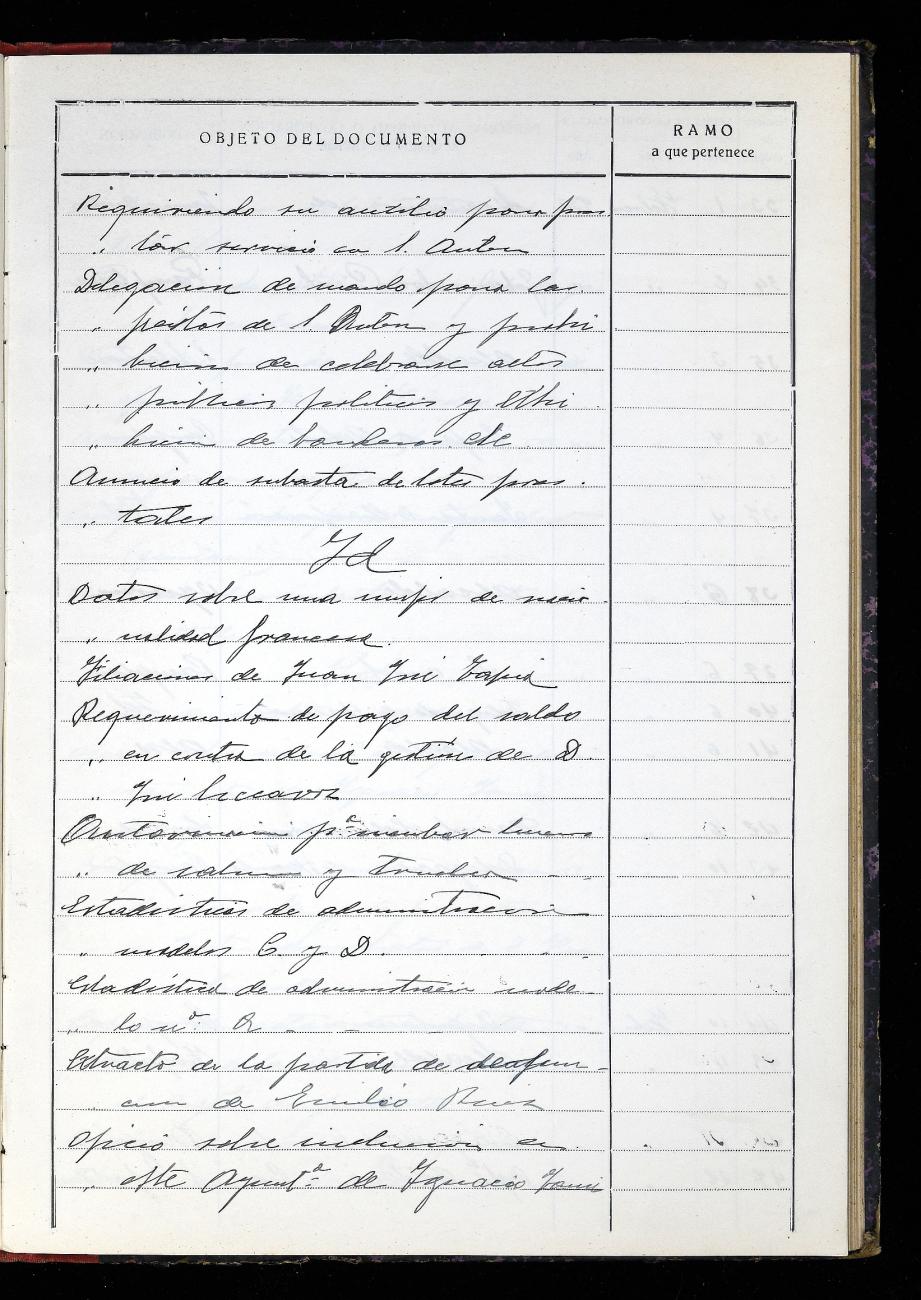 OBJETO DEL DOCUMENTO
RAMO
a que pertenece
Requiriendo su auxilio para pres
„ tar servicio en S. Anton
Delegacion de mando para las
„ fiestas de S. Anton y prohi
„ bicion de celebrarse actos
„ publicos politicos y exhi
„ bicion de banderas etc
Anuncio de subasta de lotes fores
„ tales
Id
Datos sobre una mujer de nacio
„ nalidad francesa
Filiaciones de Juan José Tapia
Requerimiento de pago del saldo
„ en contra de la gestión de D.
„ José
Autorizacion pª
„ de y
Estadisticas de administracion
„ modelos C. y D.
Estadística de administracion mode
„ lo nº A
Extracto de la partida de defun
cion de Emilio Ruiz
Oficio sobre inclusion en
„ este Ayuntº de Ignacio